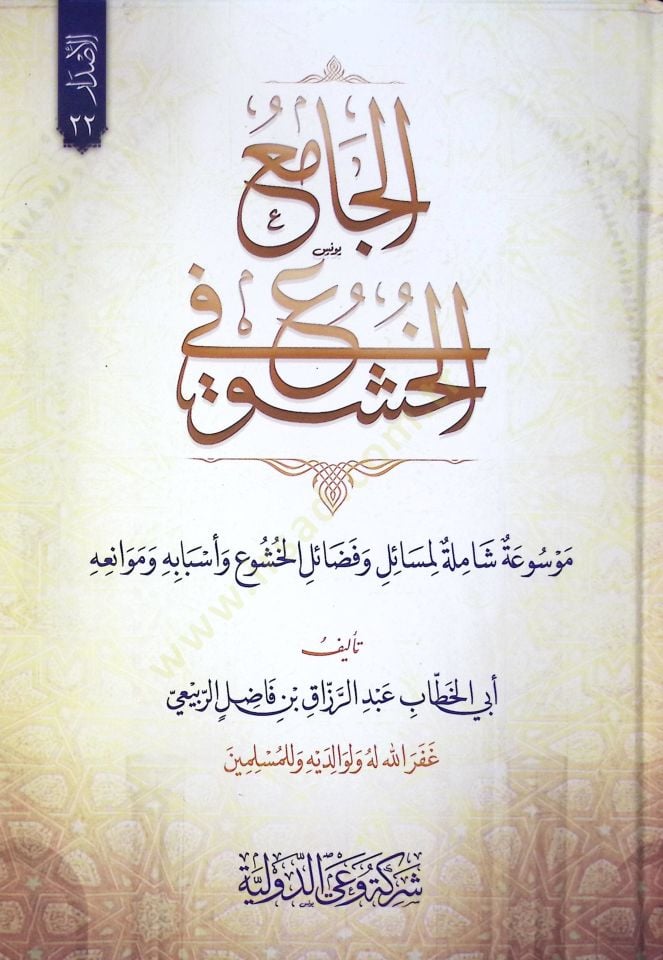 الإصدار
٢٢
الجَامِعُ
يونس
في الخُشُوعِ
مَوْسُوعَةٌ شَامِلَةٌ لِمَسَائِلِ وَفَضَائِلِ الخُشُوعِ وَأَسْبَابِهِ وَمَوَانِعِهِ
تأليفُ
أبي الخَطَّابِ عَبْدِ الرَّزَّاقِ بْنِ فَاضِلِ الرَّبِيعِيِّ
غَفَرَ اللهُ لَهُ وَلِوَالِدَيْهِ وَلِلْمُسْلِمِينَ
شَرِكَةُ وَعْيِ الدَّوْلِيَّةِ
يونس